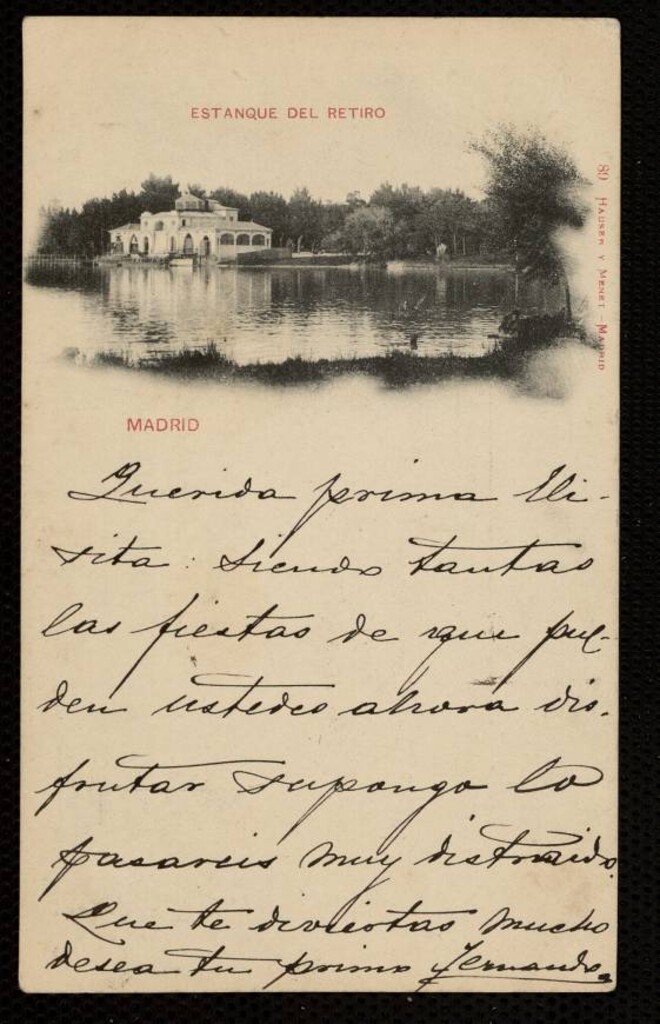 ESTANQUE DEL RETIRO
89 HAUSER Y MENET.-MADRID
MADRID
Querida prima Eli-
sita: Siendo tantas
las fiestas de que pue-
den ustedes ahora dis-
frutar supongo lo
pasareis muy distraido.
Que te diviertas mucho
desea tu primo Fernando.